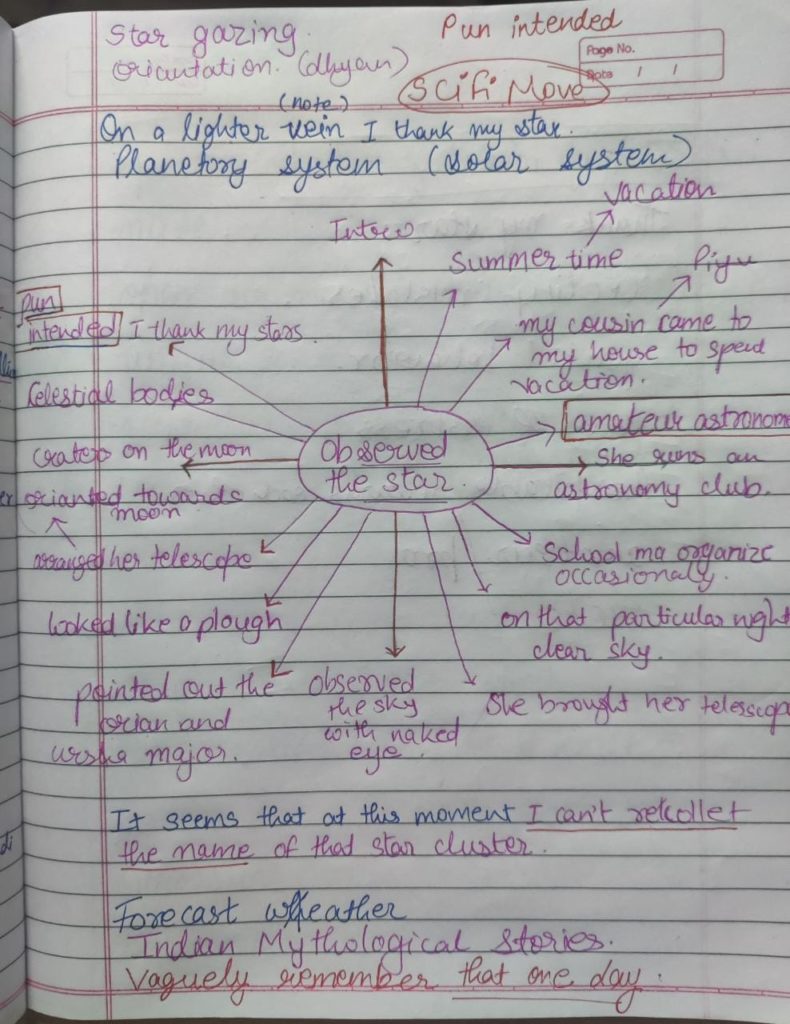 Star gazing.
Pun intended
oriantation. (dhyan)
Page No.
Date / /
SciFi Move
(note)
On a lighter vein I thank my star.
Planetory system (solar system)
vacation
Intro
Summer time
Piyu
pun
intended I thank my stars.
my cousin came to
my house to spend
vacation.
Celestial bodies
amateur astronome
craters on the moon
Observed
the star.
She runs an
astronomy club.
orianted towards
moon
arranged her telescope
School ma organize
occasionaly.
looked like a plough
on that particular night
clear sky.
pointed out the
orian and
ursha major.
observed
the sky
with naked
eye.
She brought her telescop
It seems that at this moment I can't rekollet
the name of that star cluster.
Forecast wheather
Indian Mythological stories.
Vaguely remember that one day.